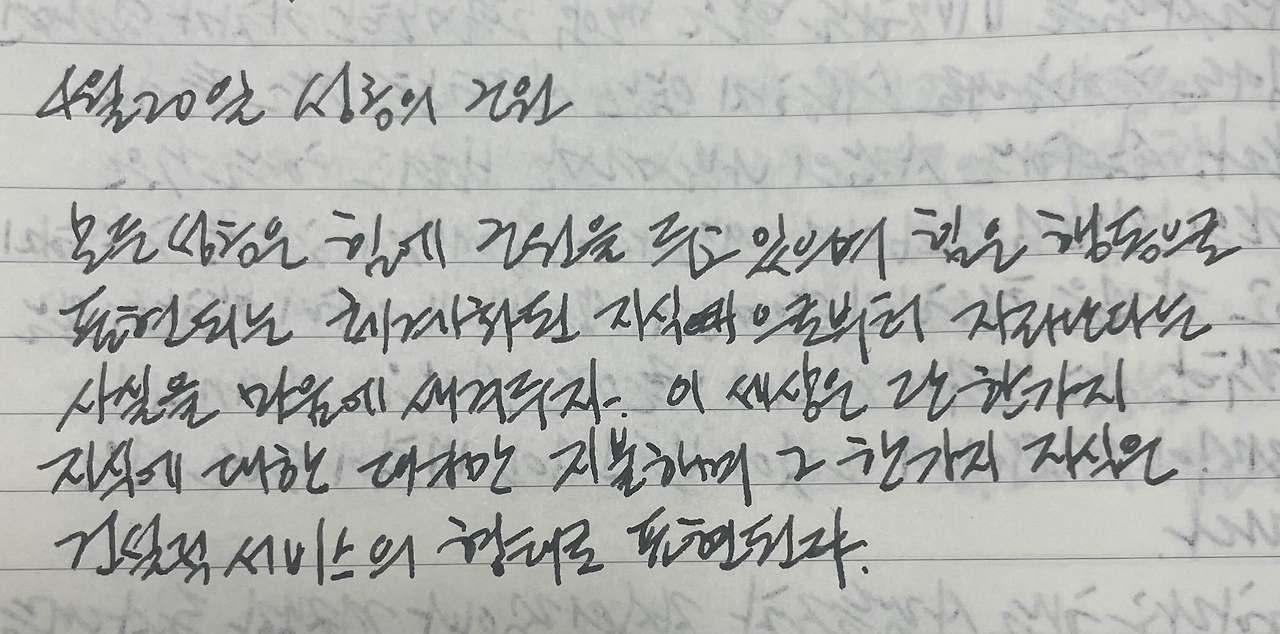 4월20일 성공의 근원
모든 성공은 힘에 근원을 두고 있으며 힘은 행동으로
표현되는 체계화된 지식 으로부터 자라난다는
사실을 마음에 새겨두자. 이 세상은 단 한가지
지식에 대한 대가만 지불하며 그 한가지 지식은
건설적 서비스의 형태로 표현된다.